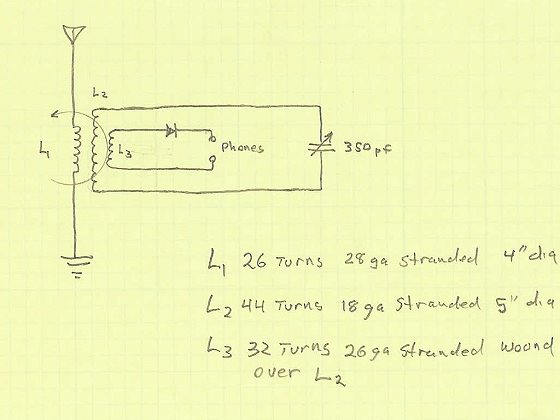 L2
L1
L3
Phones
350 pf
L1 26 Turns 28ga Stranded 4" dia
L2 44 Turns 18ga Stranded 5" dia
L3 32 Turns 26ga Stranded Wound
over L2